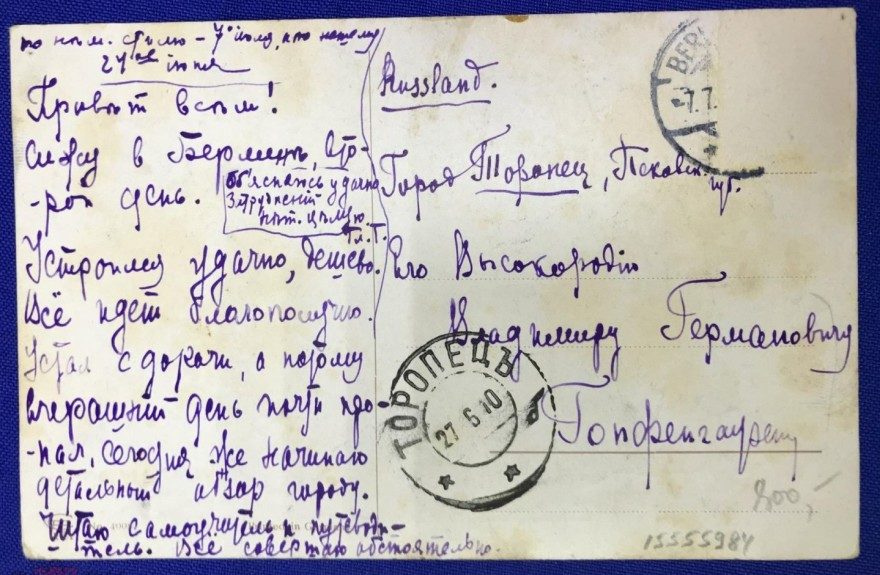 по нѣм. стилю - 7го іюля, по нашему
24ое іюня
Привѣт всѣм!
Сижу в Берлинѣ, вто-
-рой день.
Объяснаюсь удачно
Затрудненій
нѣт. цѣлую
Гл. Г.
Устроился удачно, дешево.
Всё идет благополучно.
Устал с дороги, а потому
вчерашній день почти про-
-пал, сегодня же начинаю
детальный обзор городу.
Читаю самоучитель и путеводи-
-тель. Всё совершаю обстоятельно.
Russland.
Город Торопец, Псковск.
губ.
Его Высокородію
Владимиру Германовичу
Гопфенгаузену
BER
-7.7.
ТОРОПЕЦЪ
27 6 10
б
800,-
15555984